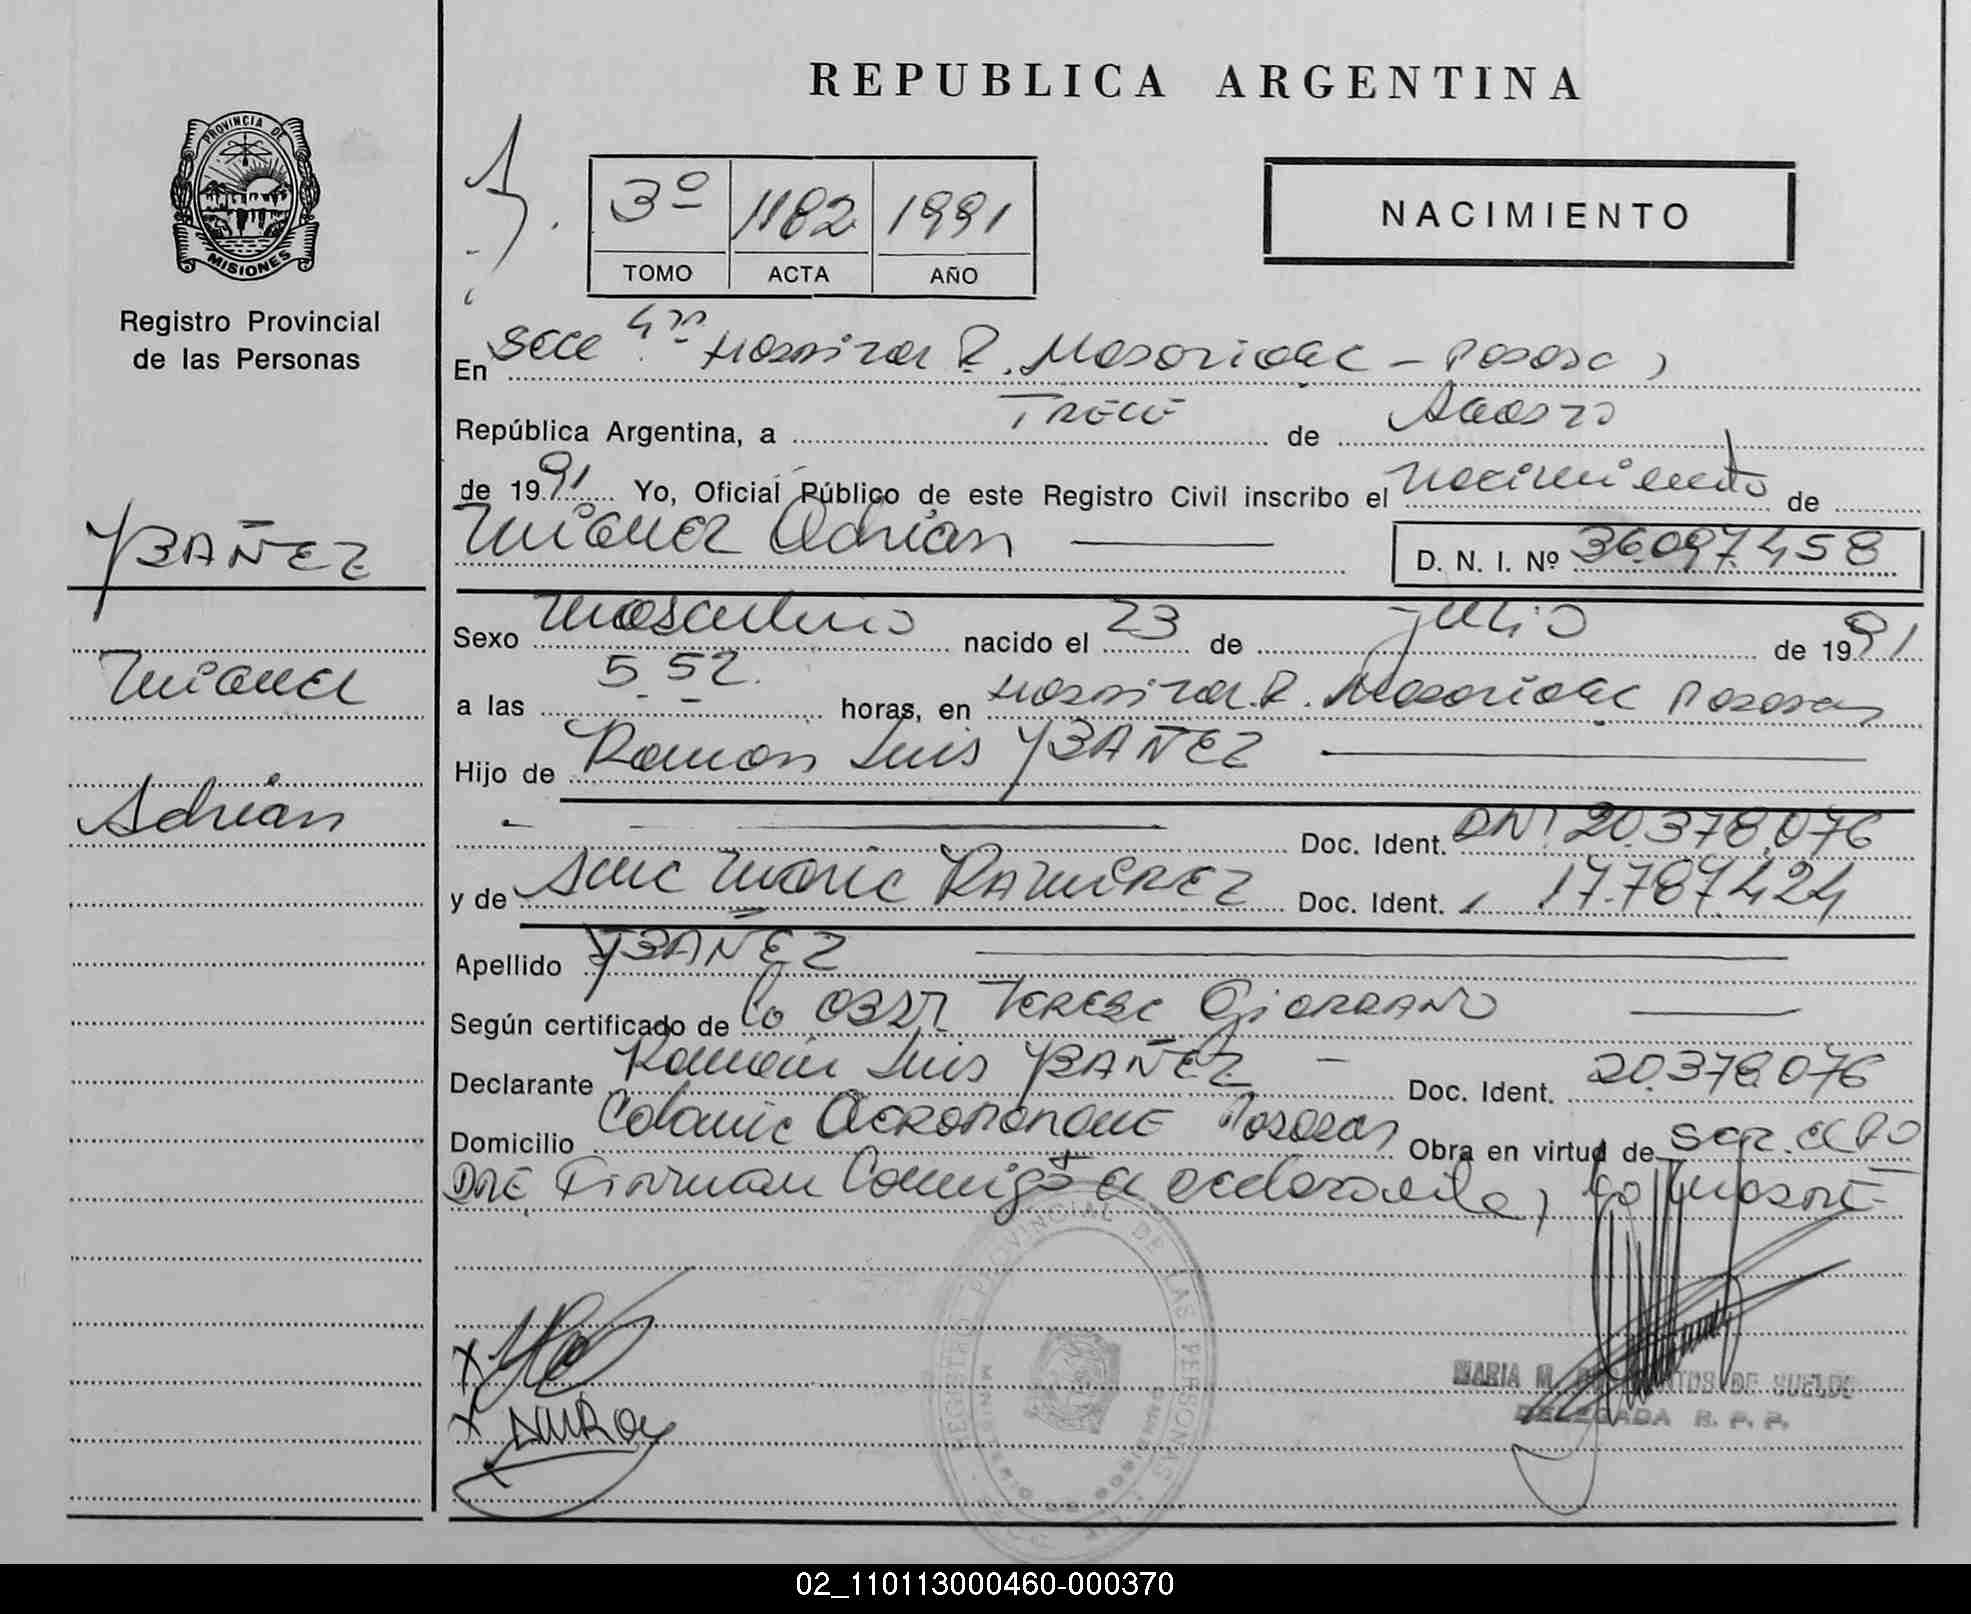 REPUBLICA ARGENTINA
PROVINCIA DE
MISIONES
Registro Provincial
de las Personas
3º 1182 1991
TOMO ACTA AÑO
NACIMIENTO
En Secc 4ta Hospital R. Madariaga - Posadas,
República Argentina, a TRECE de Agosto
de 1991 Yo, Oficial Público de este Registro Civil inscribo el nacimiento de
Miguel Adrián
D. N. I. Nº 36.097.458
YBAÑEZ
Miguel
Adrián
Sexo masculino nacido el 23 de julio de 1991
a las 5.52. horas, en Hospital R. Madariaga Posadas
Hijo de Ramon Luis YBAÑEZ
Doc. Ident. DNI 20.378.076
y de Ana Maria RAMIREZ Doc. Ident. 17.787.424
Apellido YBAÑEZ
Según certificado de la OBST TERESA GIORDANO
Declarante Ramón Luis YBAÑEZ - Doc. Ident. 20.378.076
Domicilio Colonia AEROPARQUE Posadas Obra en virtud de ser el PA
DRE Firman Conmigo el declarante, la madre
REGISTRO PROVINCIAL DE LAS PERSONAS
MINISTERIO DE GOBIERNO
MARIA M. DE SUELDO
DELEGADA R. P. P.
02_110113000460-000370